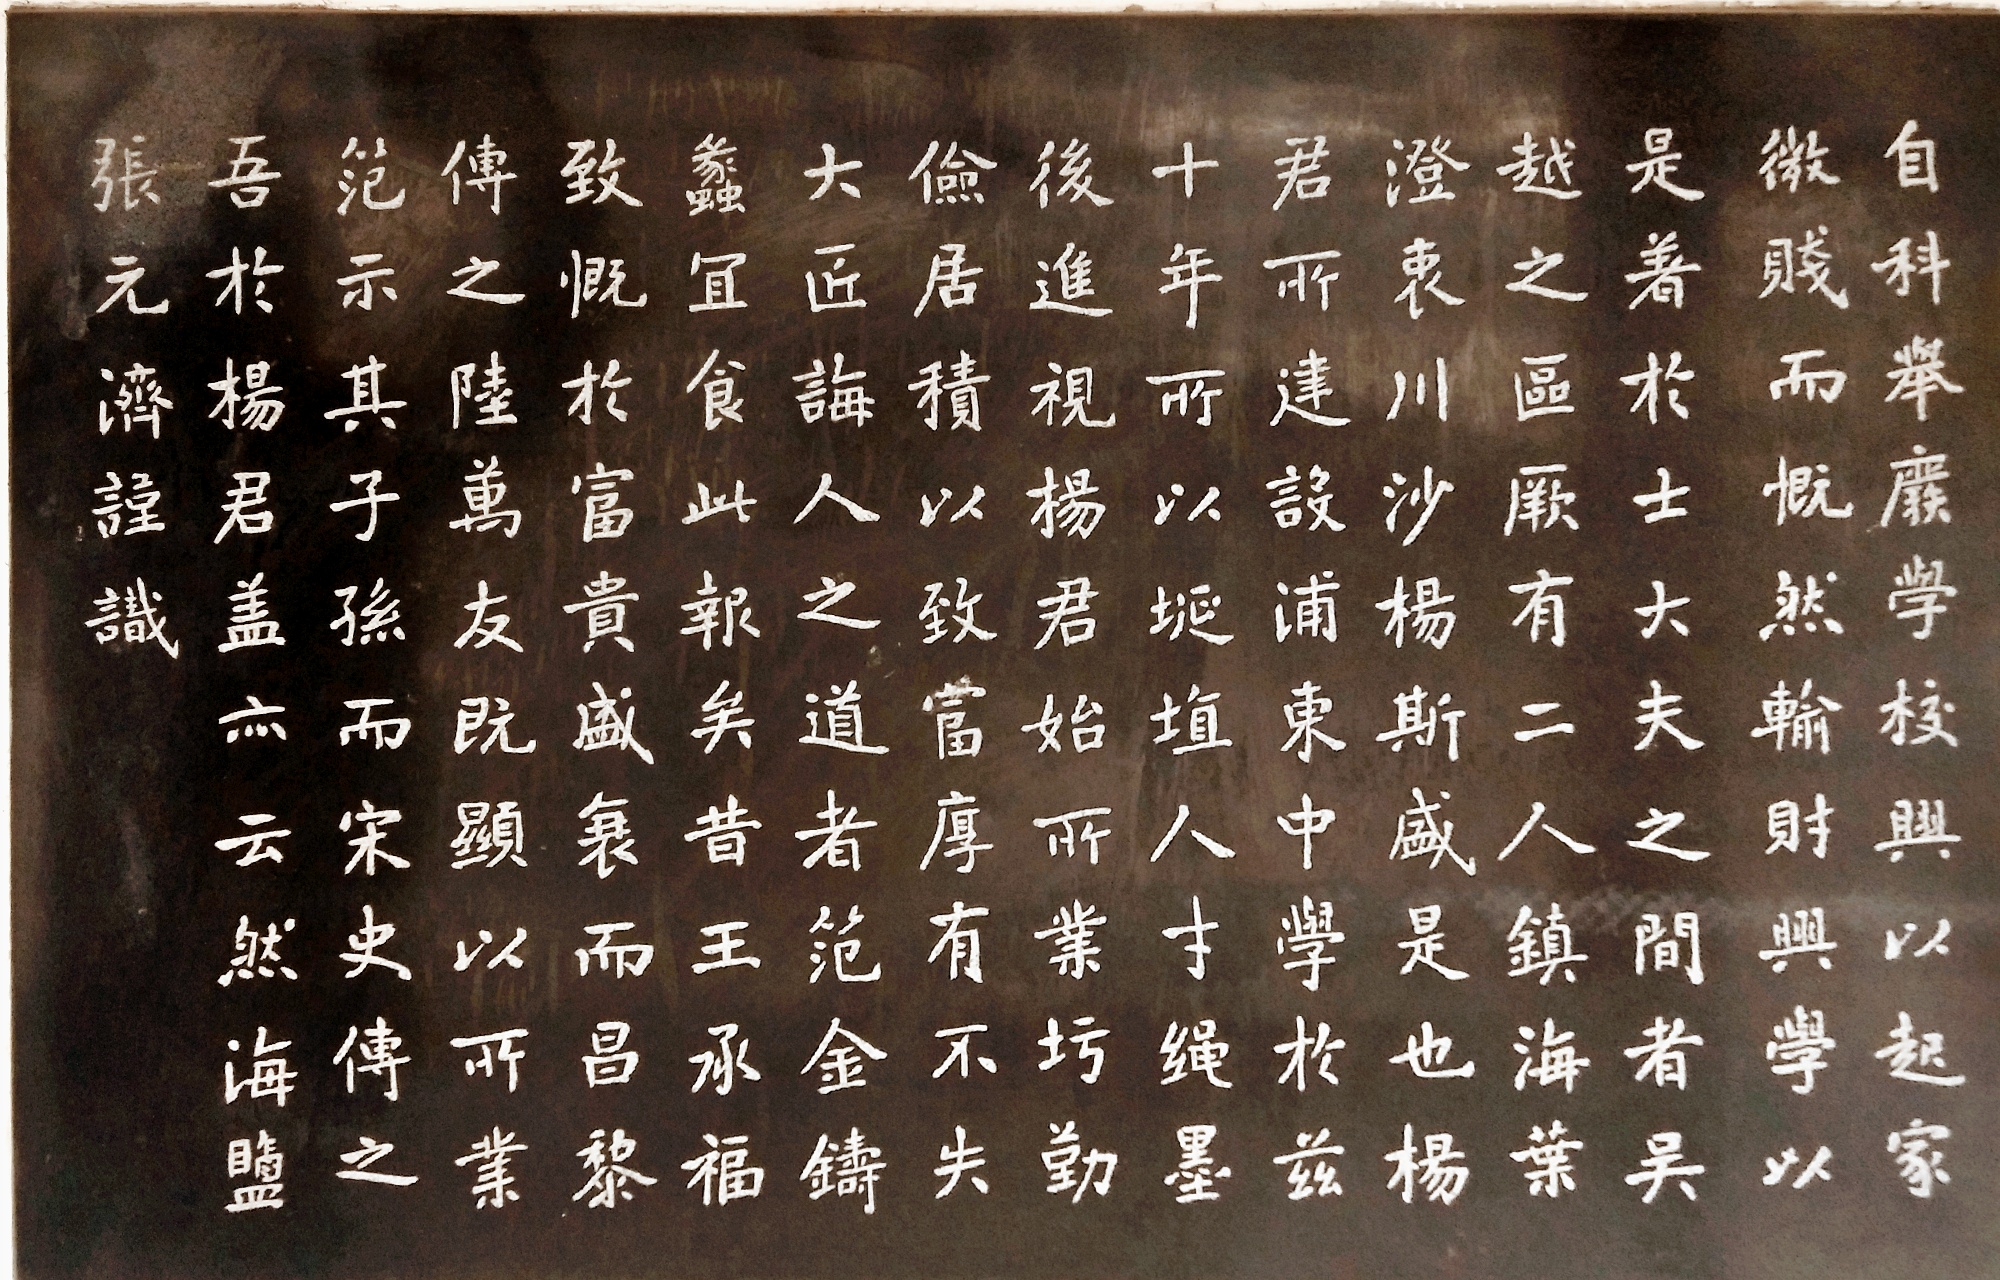 自科舉廢學校興以起家
微賤而慨然輸財興學以
是著於士大夫之間者吴
越之區厥有二人鎮海葉
澄衷川沙楊斯盛是也楊
君所建設浦東中學於兹
十年所以埏埴人才繩墨
後進視楊君始所業圬勤
儉居積以致富厚有不失
大匠誨人之道者范金鑄
蠡冝食此報矣昔王承福
致慨於富貴盛衰而昌黎
傳之陸萬友既顯以所業
范示其子孫而宋史傳之
吾於楊君盖亦云然海鹽
張元濟謹識